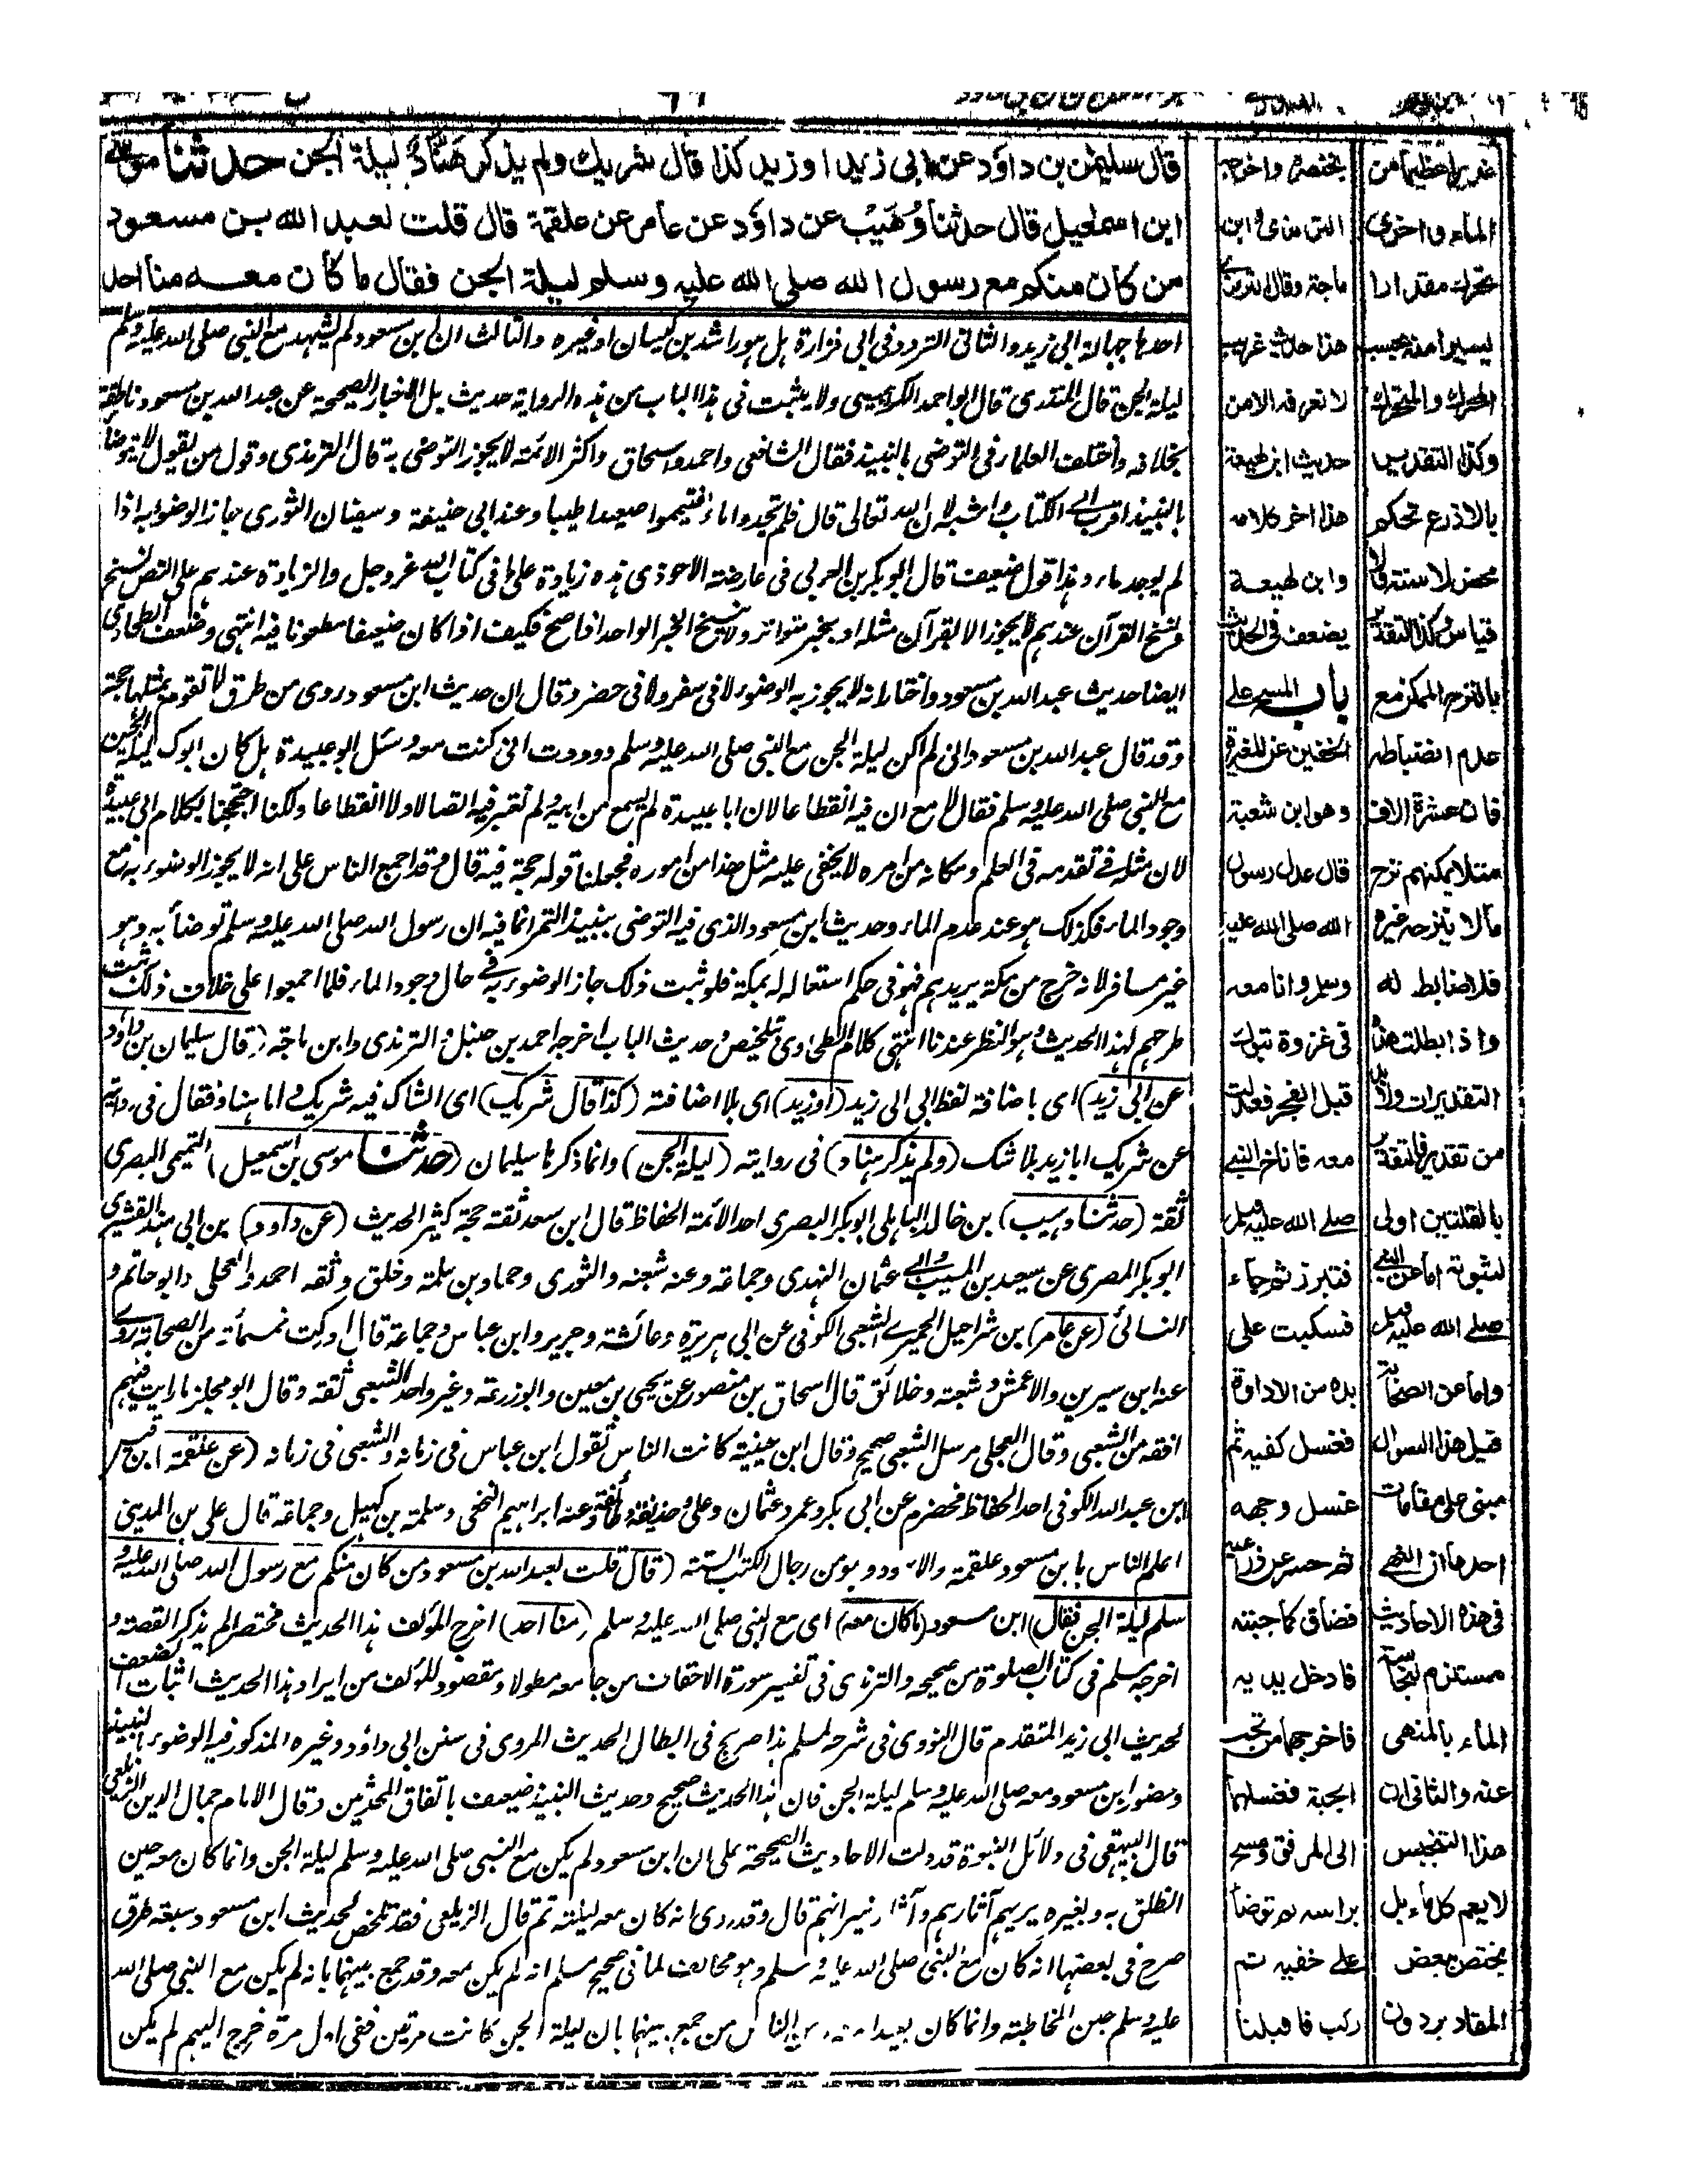 قال سليمن بن داود عن ابى زيد او زيد كذا قال شريك ولم يذكر هناد ليلة الجن حدثنا موسى
ابن اسمعيل قال حدثنا وهيب عن داود عن عامر عن علقمة قال قلت لعبد الله بن مسعود
من كان منكم مع رسول الله صلى الله عليه وسلم ليلة الجن فقال ما كان معه منا احد
احدها جهالة ابى زيد والثانى التردد فى ابى فزارة هل هو راشد بن كيسان او غيره والثالث ان ابن مسعود لم يشهد مع النبى صلى الله عليه وسلم
ليلة الجن قال المنذرى قال ابو احمد الكرابيسى ولا يثبت فى هذا الباب من هذه الرواية حديث بل الاخبار الصحيحة عن عبد الله بن مسعود ناطقة
بخلافه واختلف العلماء فى التوضى بالنبيذ فقال الشافعى واحمد واسحاق واكثر الائمة لا يجوز التوضى به قال الترمذى وقول من يقول لا يتوضأ
بالنبيذ اقرب الى الكتاب واشبه لان الله تعالى قال فلم تجدوا ماء فتيمموا صعيدا طيبا وعند ابى حنيفة وسفيان الثورى جاز الوضوء به اذا
لم يوجد ماء وهذا قول ضعيف قال ابو بكر بن العربى فى عارضة الاحوذى هذه زيادة على ما فى كتاب الله عز وجل والزيادة عندهم على النص نسخ
ونسخ القرآن عندهم لا يجوز الا بقرآن مثله او بخبر متواتر ولا ينسخ الخبر الواحد اذا صح فكيف اذا كان ضعيفا مطعونا فيه انتهى وضعف الطحاوى
ايضا حديث عبد الله بن مسعود واختار انه لا يجوز به الوضوء لا فى سفر ولا فى حضر وقال ان حديث ابن مسعود روى من طرق لا تقوم بمثلها حجة
وقد قال عبد الله بن مسعود انى لم اكن ليلة الجن مع النبى صلى الله عليه وسلم ووددت انى كنت معه وسئل ابو عبيدة هل كان ابوك ليلة الجن
مع النبى صلى الله عليه وسلم فقال لا مع ان فيه انقطاعا لان ابا عبيدة لم يسمع من ابيه ولم نعتبر فيه اتصالا ولا انقطاعا ولكنا احتججنا بكلام ابى عبيدة
لان مثله فى تقدمه فى العلم ومكانه من امره لا يخفى عليه مثل هذا من اموره فجعلنا قوله حجة فيه قال وقد اجمع الناس على انه لا يجوز الوضوء به مع
وجود الماء فكذلك هو عند عدم الماء وحديث ابن مسعود الذى فيه التوضى بنبيذ التمر انما فيه ان رسول الله صلى الله عليه وسلم توضأ به وهو
غير مسافر لانه خرج من مكة يريدهم فهو فى حكم استعماله له بمكة فلو ثبت ذلك جاز الوضوء به فى حال وجود الماء فلما اجمعوا على خلاف ذلك ثبت
طرحهم لهذا الحديث وهو النظر عندنا انتهى كلام الطحاوى بتلخيص وحديث الباب اخرجه احمد بن حنبل والترمذى وابن ماجة (قال سليمان بن داود
عن ابى زيد) اى باضافة لفظ ابى الى زيد (او زيد) اى بلا اضافة (كذا قال شريك) اى الشاك فيه شريك واما هناد فقال فى روايته
عن شريك ابا زيد بلا شك (ولم يذكر هناد) فى روايته (ليلة الجن) وانما ذكرها سليمان (حدثنا موسى بن اسمعيل) التميمى البصرى
ثقة (حدثنا وهيب) بن خالد الباهلى ابو بكر البصرى احد الائمة الحفاظ قال ابن سعد ثقة حجة كثير الحديث (عن داود) بن ابى هند القشيرى
ابو بكر المصرى عن سعيد بن المسيب وابى عثمان النهدى وجماعة وعنه شعبة والثورى وحماد بن سلمة وخلق وثقه احمد والعجلى وابو حاتم و
النسائى (عن عامر) بن شراحيل الحميرى الشعبى الكوفى عن ابى هريرة وعائشة وجرير وابن عباس وجماعة قال ادركت خمسمأة من الصحابة روى
عنه ابن سيرين والاعمش وشعبة وخلائق قال اسحاق بن منصور عن يحيى بن معين وابو زرعة وغير واحد الشعبى ثقة وقال ابو مجلز ما رايت فيهم
افقه من الشعبى وقال العجلى مرسل الشعبى صحيح وقال ابن عيينة كانت الناس تقول ابن عباس فى زمانه والشعبى فى زمانه (عن علقمة) ابن قيس
ابن عبد الله الكوفى احد الحفاظ مخضرم عن ابى بكر وعمر وعثمان وعلى وحذيفة وطائفة وعنه ابراهيم النخعى وسلمة بن كهيل وجماعة قال على بن المدينى
اعلم الناس بابن مسعود علقمة والاسود وهو من رجال الكتب الستة (قال قلت لعبد الله بن مسعود من كان منكم مع رسول الله صلى الله عليه و
سلم ليلة الجن فقال) ابن مسعود (ما كان معه) اى مع النبى صلى الله عليه وسلم (منا احد) اخرج المؤلف هذا الحديث مختصرا لم يذكر القصة و
اخرجه مسلم فى كتاب الصلوة من صحيحه والترمذى فى تفسير سورة الاحقاف من جامعه مطولا ومقصود المؤلف من ايراد هذا الحديث اثبات الضعف
لحديث ابى زيد المتقدم قال النووى فى شرح مسلم هذا صريح فى ابطال الحديث المروى فى سنن ابى داؤد وغيره المذكور فيه الوضوء بالنبيذ
وحضور ابن مسعود معه صلى الله عليه وسلم ليلة الجن فان هذا الحديث صحيح وحديث النبيذ ضعيف باتفاق المحدثين وقال الامام جمال الدين الزيلعى
قال البيهقى فى دلائل النبوة قد دلت الاحاديث الصحيحة على ان ابن مسعود لم يكن مع النبى صلى الله عليه وسلم ليلة الجن وانما كان معه حين
انطلق به وبغيره يريهم آثارهم وآثار نيرانهم قال وقد روى انه كان معه ليلته ثم قال الزيلعى فقد تلخص لحديث ابن مسعود سبعة طرق
صرح فى بعضها انه كان مع النبى صلى الله عليه وسلم وهو مخالف لما فى صحيح مسلم انه لم يكن معه وقد جمع بينهما بانه لم يكن مع النبى صلى الله
عليه وسلم حين المخاطبة وانما كان بعيدا منه ومن الناس من جمع بينهما بان ليلة الجن كانت مرتين ففى اول مرة خرج اليهم لم يكن
بختصرا واخرجه
الترمذى وابن
ماجة وقال الترمذى
هذا حديث غريب
لا نعرفه الا من
حديث ابن لهيعة
هذا اخر كلامه
وابن لهيعة
يضعف فى الحديث
باب المسح على
الخفين عن المغيرة
وهو ابن شعبة
قال عدل رسول
الله صلى الله عليه
وسلم وانا معه
فى غزوة تبوك
قبل الفجر فعدلت
معه فاناخ النبى
صلى الله عليه وسلم
فتبرز ثم جاء
فسكبت على
يده من الاداوة
فغسل كفيه ثم
غسل وجهه
ثم حسر عن ذراعيه
فضاق كما جبته
فادخل يديه
فاخرجهما من تحت
الجبة فغسلهما
الى المرفق ومسح
براسه ثم توضأ
على خفيه ثم
ركب فاقبلنا
غديرا عظيما من
الماء واخرى
محركه مقدارا
يسيرا منه بحسب
المحرك والمتحرك
وكذا التقدير
بالاذرع تحكم
محض لا سنة ولا
قياس وكذا التقدير
بالنزح الممكن مع
عدم انضباطه
فان عشرة الاف
مثلا يمكنهم نزح
مالا ينزحه غيرهم
فلا ضابط له
واذا بطلت هذه
التقديرات ولا بد
من تقدير فالتقدير
بالقلتين اولى
لثبوته اما عن النبى
صلى الله عليه وسلم
واما عن الصحابة
قيل هذا السؤال
مبنى على مقامات
احدها ان النهى
فى هذه الاحاديث
مستلزم لنجاسة
الماء بالمنهى
عنه والثانى ان
هذا التنجيس
لا يعم كل ماء بل
يختص ببعض
المقادير دون